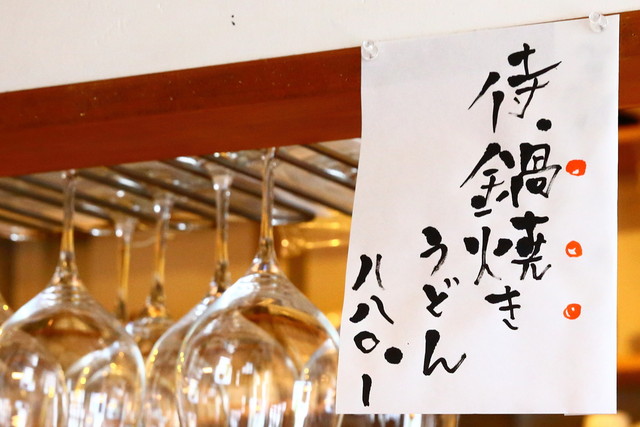 侍・鍋焼き
うどん
八八〇・ー